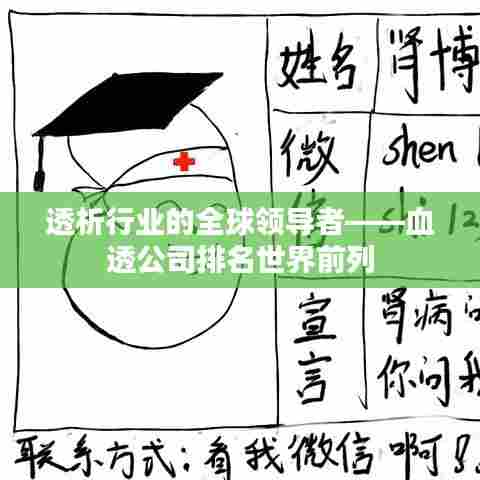 姓名 肾博
微信 shen
shi12
透析行业的全球领导者——血
透公司排名世界前列
宣言 肾病问
你问我
联系方式：看我微信啊？